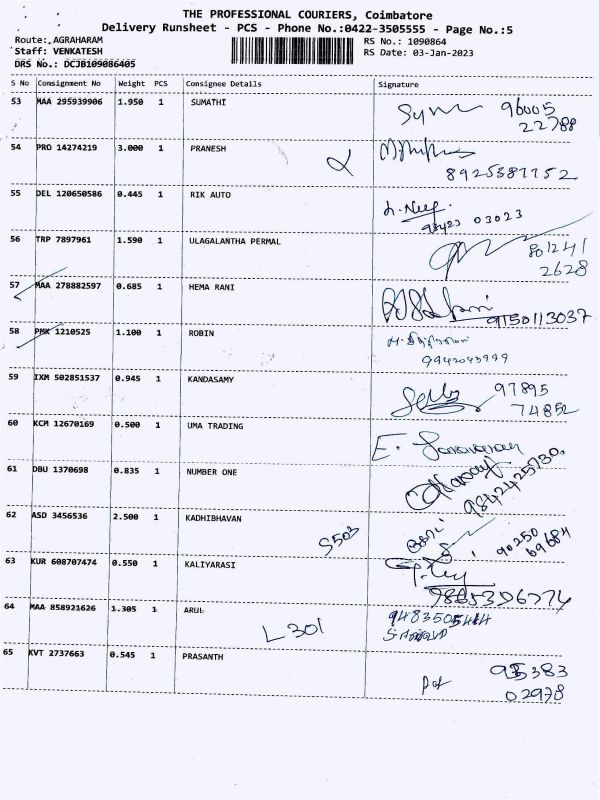 THE PROFESSIONAL COURIERS, Coimbatore
Delivery Runsheet - PCS - Phone No.:0422-3505555 - Page No.:5
Route: AGRAHARAM
RS No.: 1090864
Staff: VENKATESH
RS Date: 03-Jan-2023
DRS No.: DCJB109086405
S No Consignment No Weight PCS Consignee Details Signature
53 MAA 295939906 1.950 1 SUMATHI 96005
22788
54 PRO 14274219 3.000 1 PRANESH
8925387752
55 DEL 120650586 0.445 1 RIK AUTO
98423 03023
56 TRP 7897961 1.590 1 ULAGALANTHA PERMAL 801241
2628
57 MAA 278882597 0.685 1 HEMA RANI
9150113037
58 PMK 1210525 1.100 1 ROBIN
59 IXM 502851537 0.945 1 KANDASAMY 97895
74852
60 KCM 12670169 0.500 1 UMA TRADING E. Saravanan
61 DBU 1370698 0.835 1 NUMBER ONE
9842425730
62 ASD 3456536 2.500 1 KADHIBHAVAN
S503 90250
69684
63 KUR 608707474 0.550 1 KALIYARASI
64 MAA 858921626 1.305 1 ARUL
L 301
65 KVT 2737663 0.545 1 PRASANTH
02978